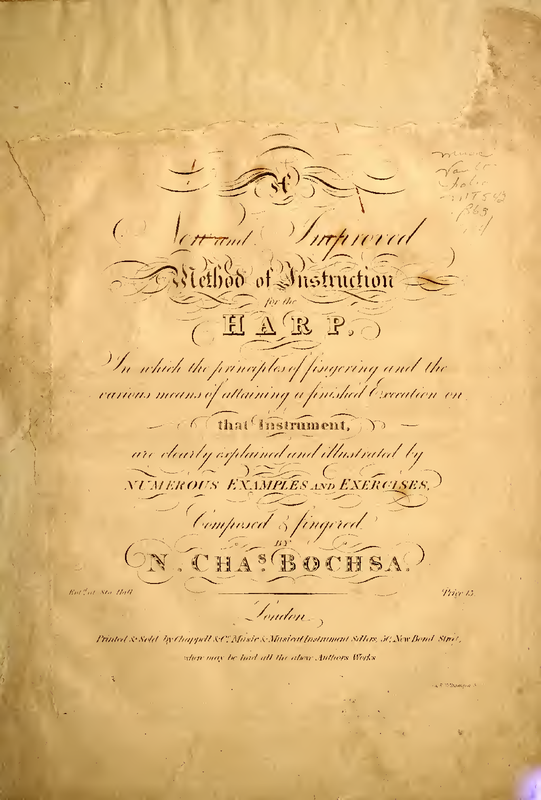 A
New and Improved
Method of Instruction
for the
HARP.
In which the principles of fingering and the
various means of attaining a finished Execution on
that Instrument,
are clearly explained and illustrated by
NUMEROUS EXAMPLES AND EXERCISES,
Composed & fingered
BY
N. CHAS. BOCHSA.
Ent.d at Sta. Hall
Price 15
London
Printed & Sold by Chappell & Co. Music & Musical Instrument Sellers, 50, New Bond Street,
where may be had all the above Authors Works